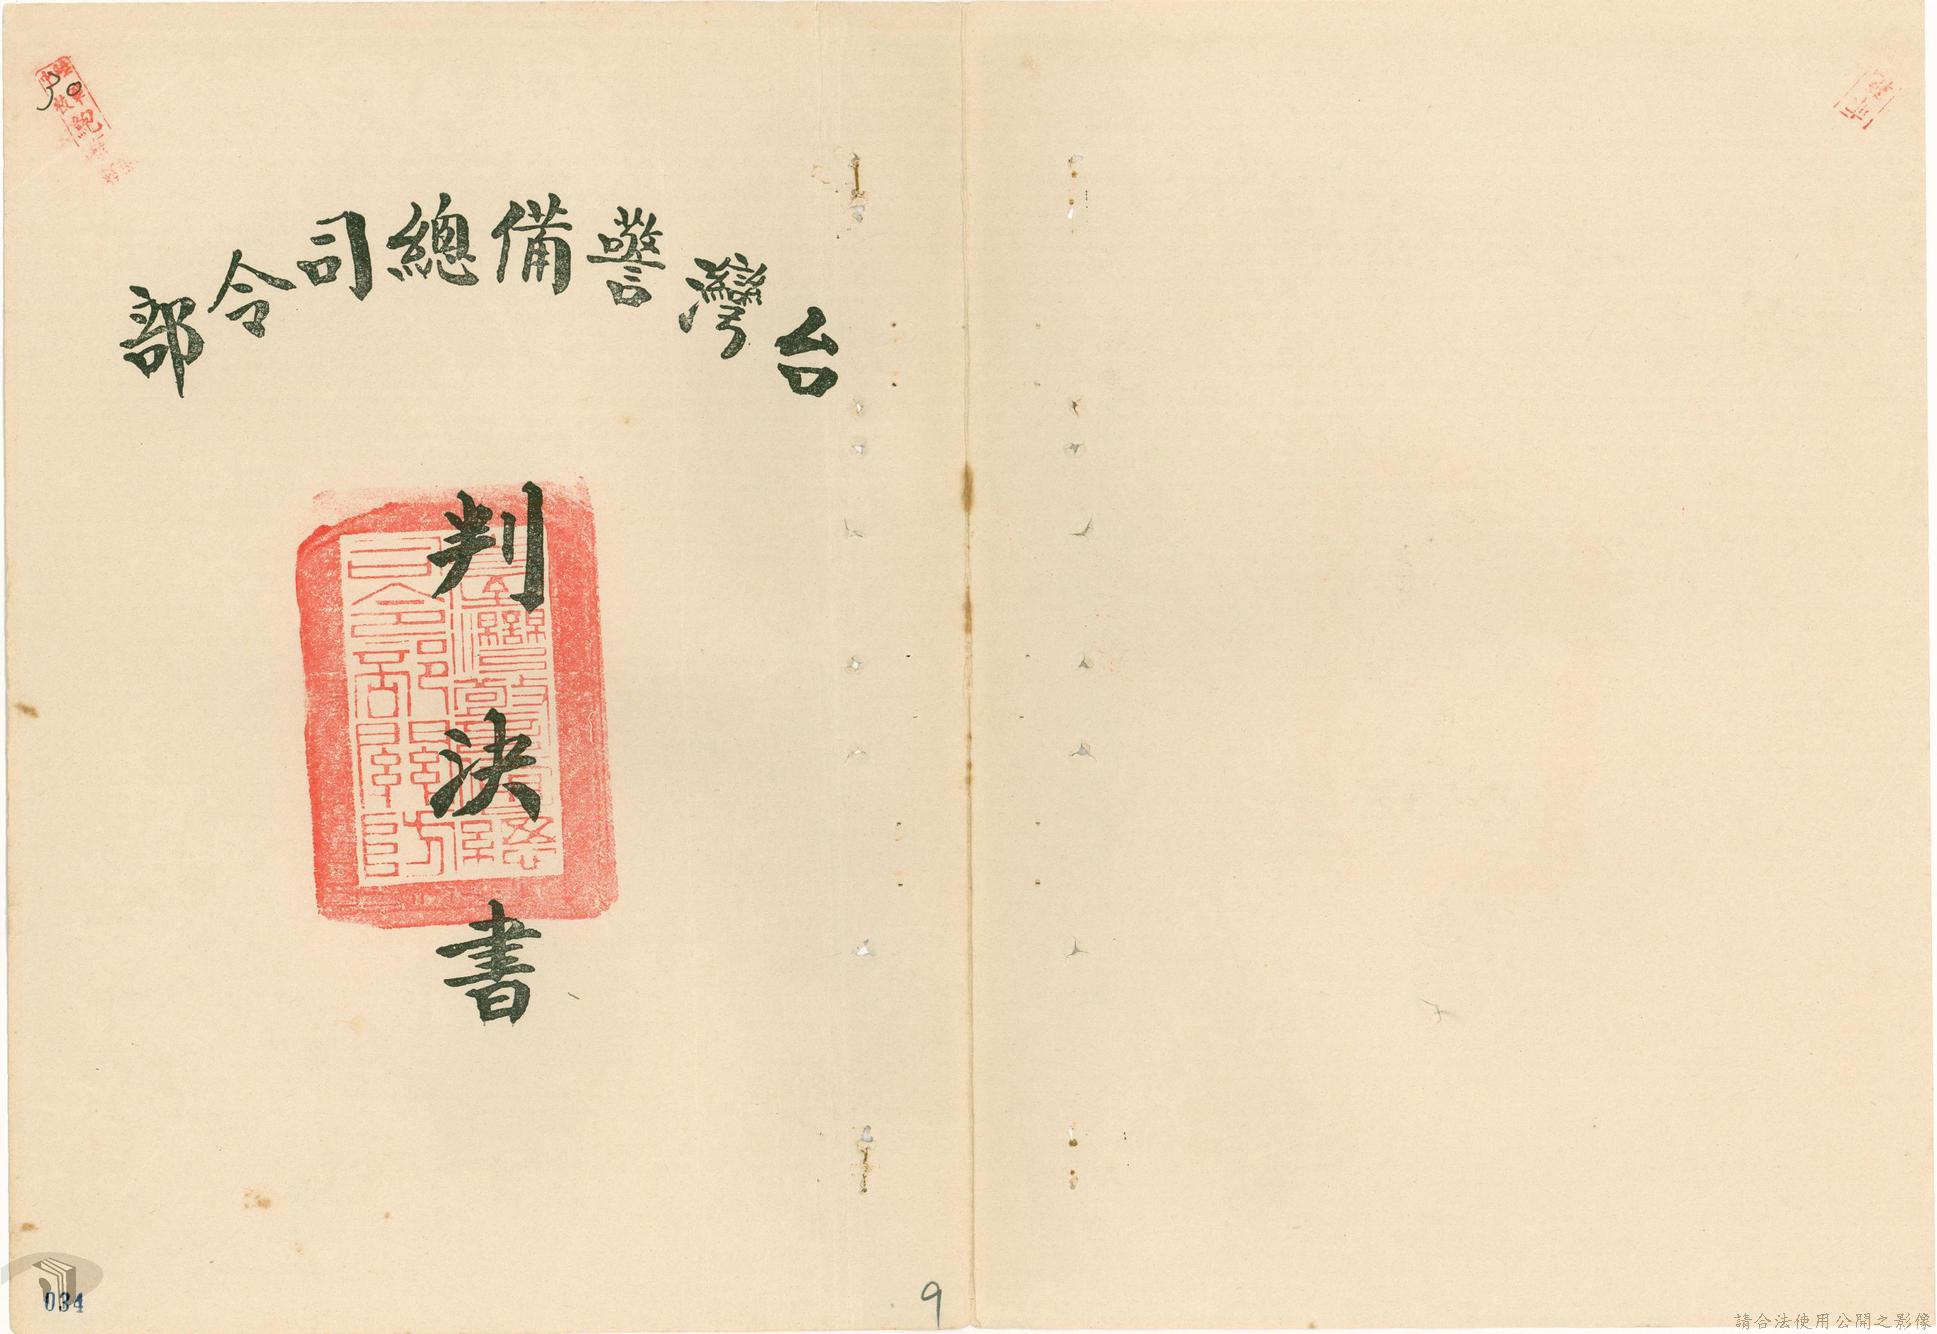 台灣警備總司令部
判決書
30
034
9
請合法使用公開之影像